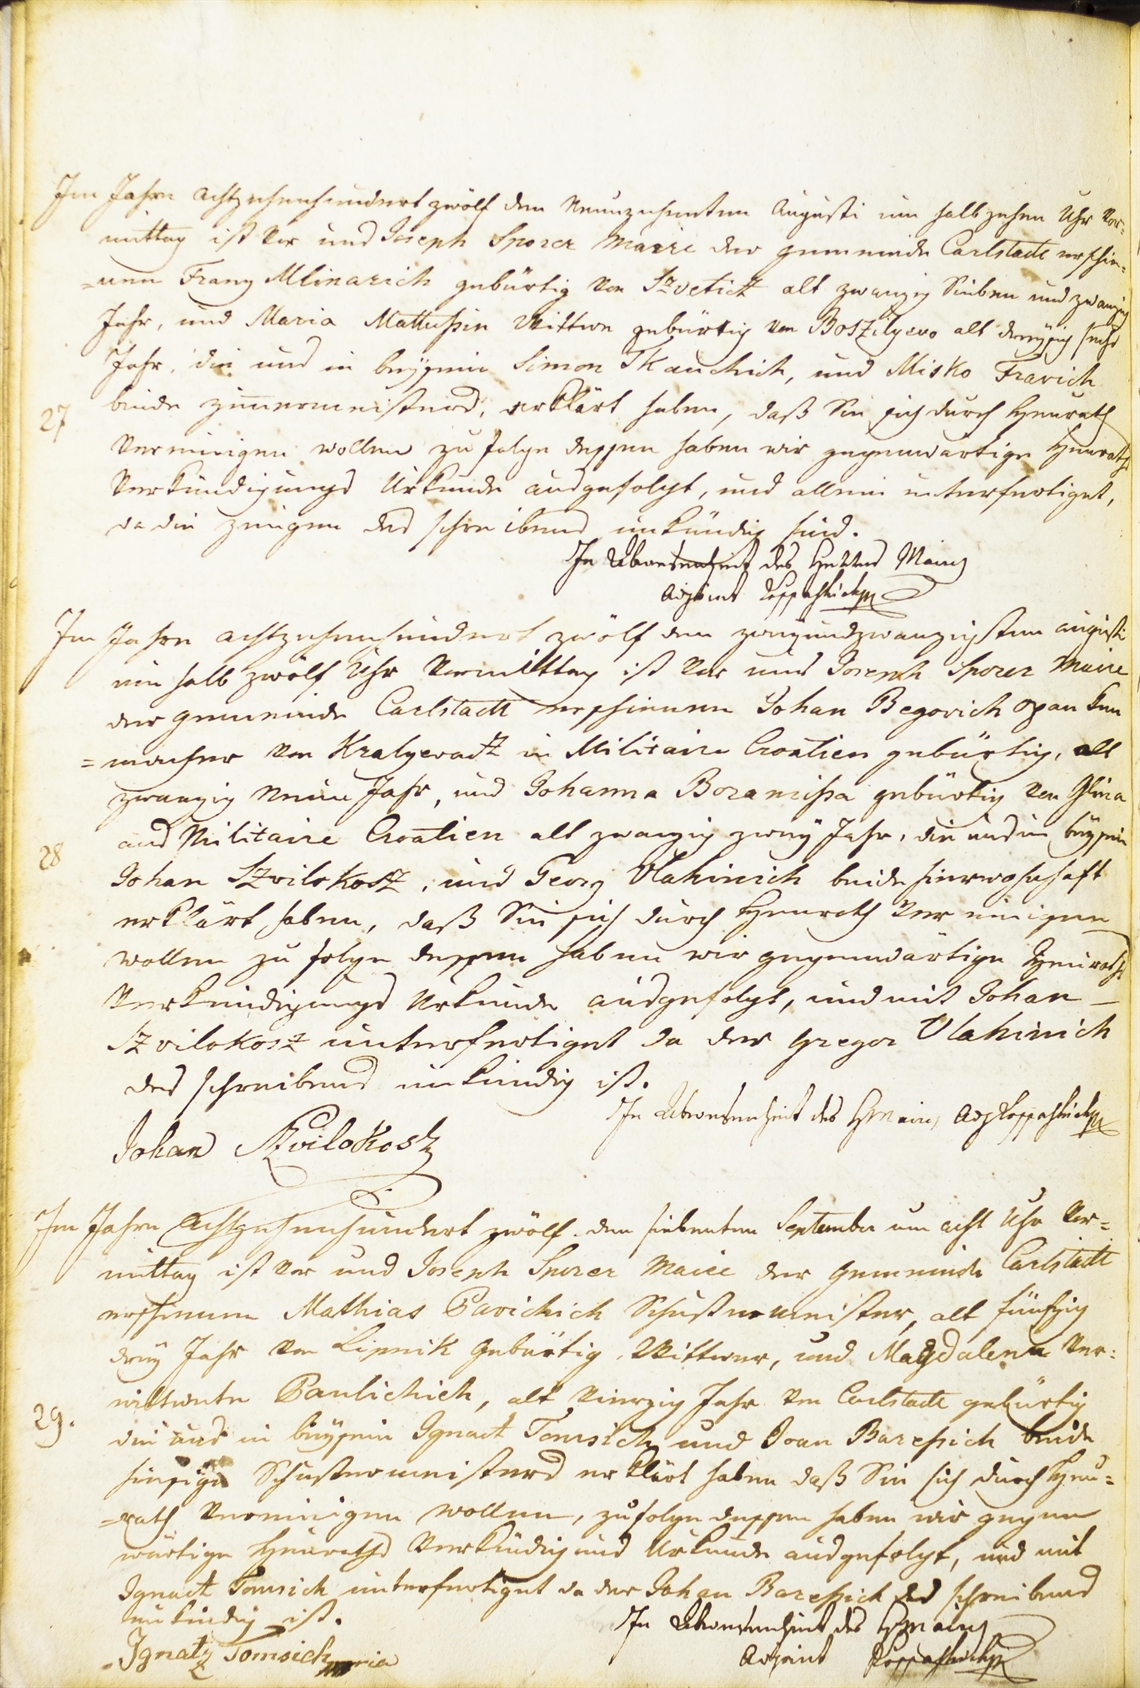 Im Jahre achtzehenhundert zwölf den Neunzehenten Augusti um halb zehen Uhr Vor=
mittag ist Vor und Joseph Sporer Maire der gemeinde Carlstadt erschie=
=nen Franz Mlinarich gebürtig von Szvetitz alt zwanzig Sieben und zwanzig
Jahr, und Maria Mattessin Wittwe gebürtig von Boszilyevo alt dreyßig sechs
Jahr, die uns in beyseyn Simon Tkauchich, und Misko Fravich
27
beide zimmermeisters, erklärt haben, daß Sie sich durch Heurath
Vereinigen wollen zu folge dessen haben wir gegenwärtige Heuraths
Verkündigungs Urkunde ausgefolgt, und allein unterfertiget,
da die zeugen des schreibens unkündig sind.
In Abwesenheit des Herrn Maire
Adjoint
Im Jahre achtzehenhundert zwölf den zweyundzwanzigsten augusti
um halb zwölf Uhr Vormittag ist Vor uns Joseph Sporer Maire
der gemeinde Carlstadt erschienen Johan Begovich Opanken
=macher von Kralyevatz in Militaire Croatien gebürtig, alt
zwanzig Neun Jahr, und Johanna gebürtig von Glina
aus Militaire Croatien alt zwanzig zwey Jahr, die uns in beyseyn
28
Johan Szvilokosz, und Georg Vlahinich beide hierwohnhaft
erklärt haben, daß Sie sich durch Heurath Vereinigen
wollen zu folge dessen haben wir gegenwärtige Heuraths
Verkündigungs Urkunde ausgefolgt, und mit Johan
Szvilokosz unterfertiget da der Gregor Vlahinich
des schreibens unkündig ist.
In Abwesenheit des H Maire, Adj
Johan Szvilokosz
Im Jahre Achtzehenhundert zwölf den siebenten September um acht Uhr Vor=
mittag ist Vor uns Joseph Sporer Maire der gemeinde Carlstadt
erschienen Mathias Pavichich Schustermeister, alt fünfzig
drey Jahr von Lipnik gebürtig Wittwer, und Magdalena Ver=
wittwete Paulichich, alt Vierzig Jahr von Carlstadt gebürtig
29.
die uns in beyseyn Ignatz Tomsich und Ivan Baressich beide
hiesige Schustermeisters erklärt haben daß Sie sich durch Heu=
=rath Vereinigen wollen, zufolge dessen haben wir gegen
wärtige Heuraths Verkündigung Urkunde ausgefolgt, und mit
Ignatz Tomsich unterfertiget da der Johan Baressich des schreibens
unkündig ist.
In Abwesenheit des H Maire
Adjoint
Ignatz Tomsich